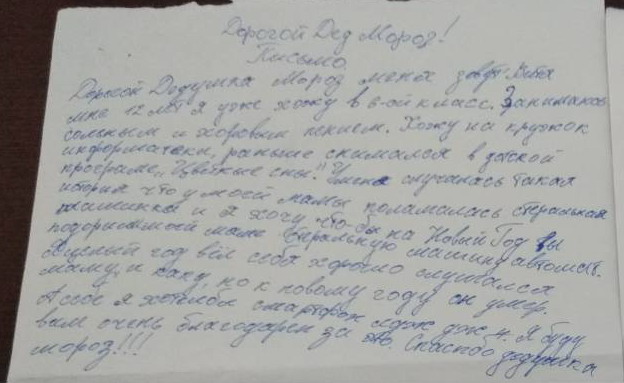 Дорогой Дед Мороз!
Письмо
Дорогой Дедушка Мороз меня зовут Витя
мне 12 лет я уже хожу в 6-ой класс. Занимаюсь
сольным и хоровым пением. Хожу на кружок
информатеки, раньше снимался в детской
програме „Цветные сны". У меня случилась такая
история что у моей мамы поламалась стеральная
машинка и я хочу что-бы на Новый Год вы
подорили моей маме стеральную машину автомат.
Я целый год вёл себя хорошо слушался
маму, и папу, но к новому году он умер.
А себе я хотелбы смартфон лдж дж 4. Я буду
вам очень благодарен за это. Спасибо дедушка
мороз!!!